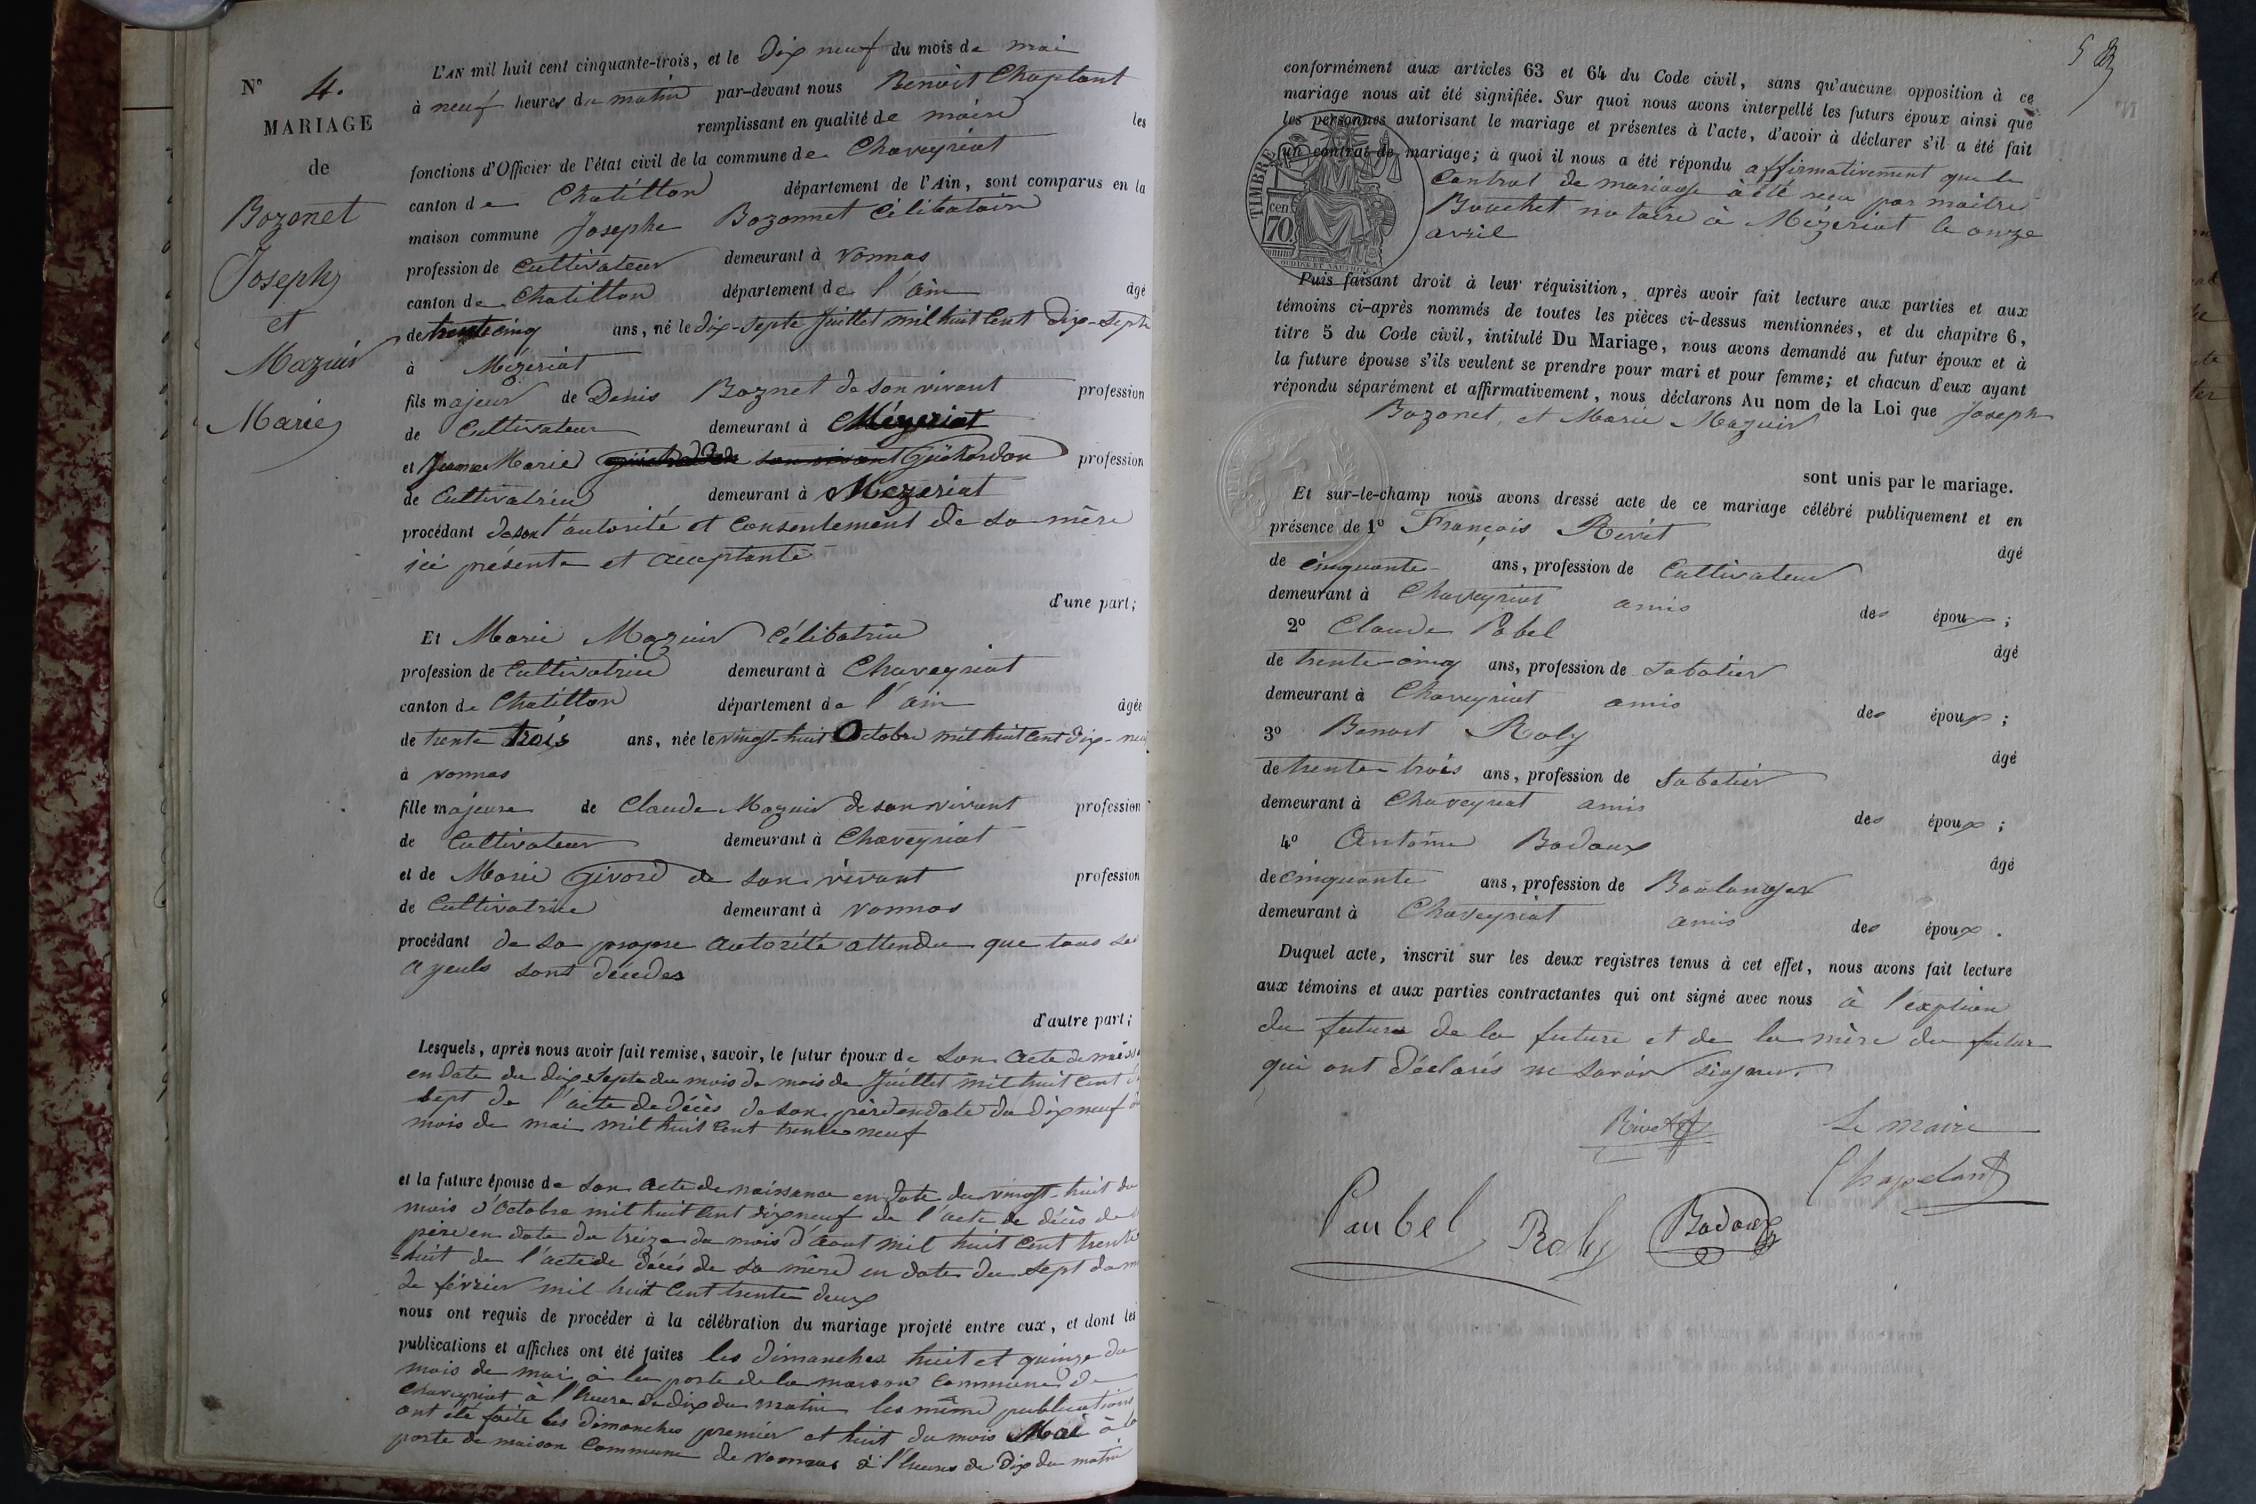 N° 4.
MARIAGE
de
Bozonet
Joseph
et
Mazuir
Marie
L'AN mil huit cent cinquante-trois, et le dix neuf du mois de mai
à neuf heures du matin par-devant nous Benoit Chaplant
remplissant en qualité de maire les
fonctions d'Officier de l'état civil de la commune de Chaveyriat
canton de Chatillon département de l'Ain, sont comparus en la
maison commune Josephe Bozonnet Célibatair
profession de Cultivateur demeurant à Vonnas
canton de Chatillon département de l'ain âgé
de trente cinq ans, né le dix-septe juillet mil huit cent dix-septe
à Mézeriat
fils majeur de Denis Boznet de son vivant profession
de Cultivateur demeurant à Mézeriat
et Jeanne Marie Guichardon profession
de Cultivatrice demeurant à Mezeriat
procédant de son l'autorité et Consentement de sa mère
ici présente et acceptante
d'une part;
Et Marie Mazuir Célibatrice
profession de Cultivatrice demeurant à Chaveyriat
canton de Chatillon département de l'ain âgée
de trente trois ans, née le vingt-huit Octobre mil huit Cent dix-neuf
à Vonnas
fille majeure de Claude Mazuir de son vivant profession
de Cultivateur demeurant à Chaveyriat
et de Marie Givord de son vivant profession
de Cultivatrice demeurant à Vonnas
procédant de sa propre autorité attendu que tous ses
ayeuls sont décedes
d'autre part;
Lesquels, après nous avoir fait remise, savoir, le futur époux de son acte de naiss
en date du dix-septe du mois de mois de Juillet mil huit Cent
sept de l'acte de décès de son père en date du dix neuf du
mois de mai mil huit Cent trente neuf
et la future épouse de son acte de naissance en date du vingt-huit du
mois d'Octobre mil huit Cent dix neuf de l'acte de décès de
père en date du treize du mois d'Aout mil huit Cent trente
-huit de l'acte de décés de sa mère en date du sept du m
de février mil huit Cent trente deux
nous ont requis de procéder à la célébration du mariage projeté entre eux, et dont les
publications et affiches ont été faites les dimanches huit et quinze du
mois de mai à la porte de la maison Commune de
Chaveyriat à l'heure de dix du matin les même publications
ont été faite les dimanches premier et huit du mois Mai à la
porte de maison Commune de Vonnas à l'heure de dix du matin
conformément aux articles 63 et 64 du Code civil, sans qu'aucune opposition à ce
mariage nous ait été signifiée. Sur quoi nous avons interpellé les futurs époux ainsi que
les personnes autorisant le mariage et présentes à l'acte, d'avoir à déclarer s'il a été fait
un contrat de mariage; à quoi il nous a été répondu affirmativement que le
Contrat de mariage à été reçu par maitre
Bouchet notaire à Mézeriat le onze
avril
TIMBRE
70 cent
Puis faisant droit à leur réquisition, après avoir fait lecture aux parties et aux
témoins ci-après nommés de toutes les pièces ci-dessus mentionnées, et du chapitre 6,
titre 5 du Code civil, intitulé Du Mariage, nous avons demandé au futur époux et à
la future épouse s'ils veulent se prendre pour mari et pour femme; et chacun d'eux ayant
répondu séparément et affirmativement, nous déclarons Au nom de la Loi que Joseph
Bozonet, et Marie Mazuir
sont unis par le mariage.
Et sur-le-champ nous avons dressé acte de ce mariage célébré publiquement et en
présence de 1° François Rivet âgé
de cinquante ans, profession de Cultivateur
demeurant à Chaveyriat amis des époux;
2° Claude Pobel âgé
de trente-cinq ans, profession de sabotier
demeurant à Chaveyriat amis des époux;
3° Benoit Roly âgé
de trente-trois ans, profession de sabotier
demeurant à Chaveyriat amis des époux;
4° Antoine Badoux âgé
de cinquante ans, profession de Boulanger
demeurant à Chaveyriat amis des époux.
Duquel acte, inscrit sur les deux registres tenus à cet effet, nous avons fait lecture
aux témoins et aux parties contractantes qui ont signé avec nous à l'exption
du future de la future et de la mère du futur
qui ont déclarés ne savoir signer.
Rivet Le maire
Chapelant
Paubel Roly Badoux